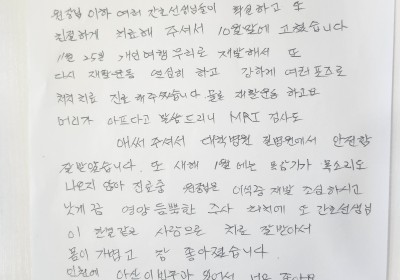 원장님 이하 여러 간호선생님들이 확실하고 또
친절하게 치료해 주셔서 10월말에 고쳤습니다
11월 25일 개인여행 무리로 재발해서 또
다시 재활운동 열심히 하고 강하게 여러포즈로
척척 치료 진료 해주셨습니다 물론 재활운동 하고요
머리가 아프다고 말씀드리니 MRI 검사도
애써 주셔서 대학병원 길병원에서 안전함
잘받았습니다. 또 새해 1월에는 목소리도
나오지 않아 진료중 원장님은 이석증 재발 조심하시고
낫게끔 영양 듬뿍한 주사 처치에 또 간호선생님
이 친절같은 사랑으로 치료 잘받아서
몸이 가볍고 참 좋아졌습니다.
인천에 아산이비인후과